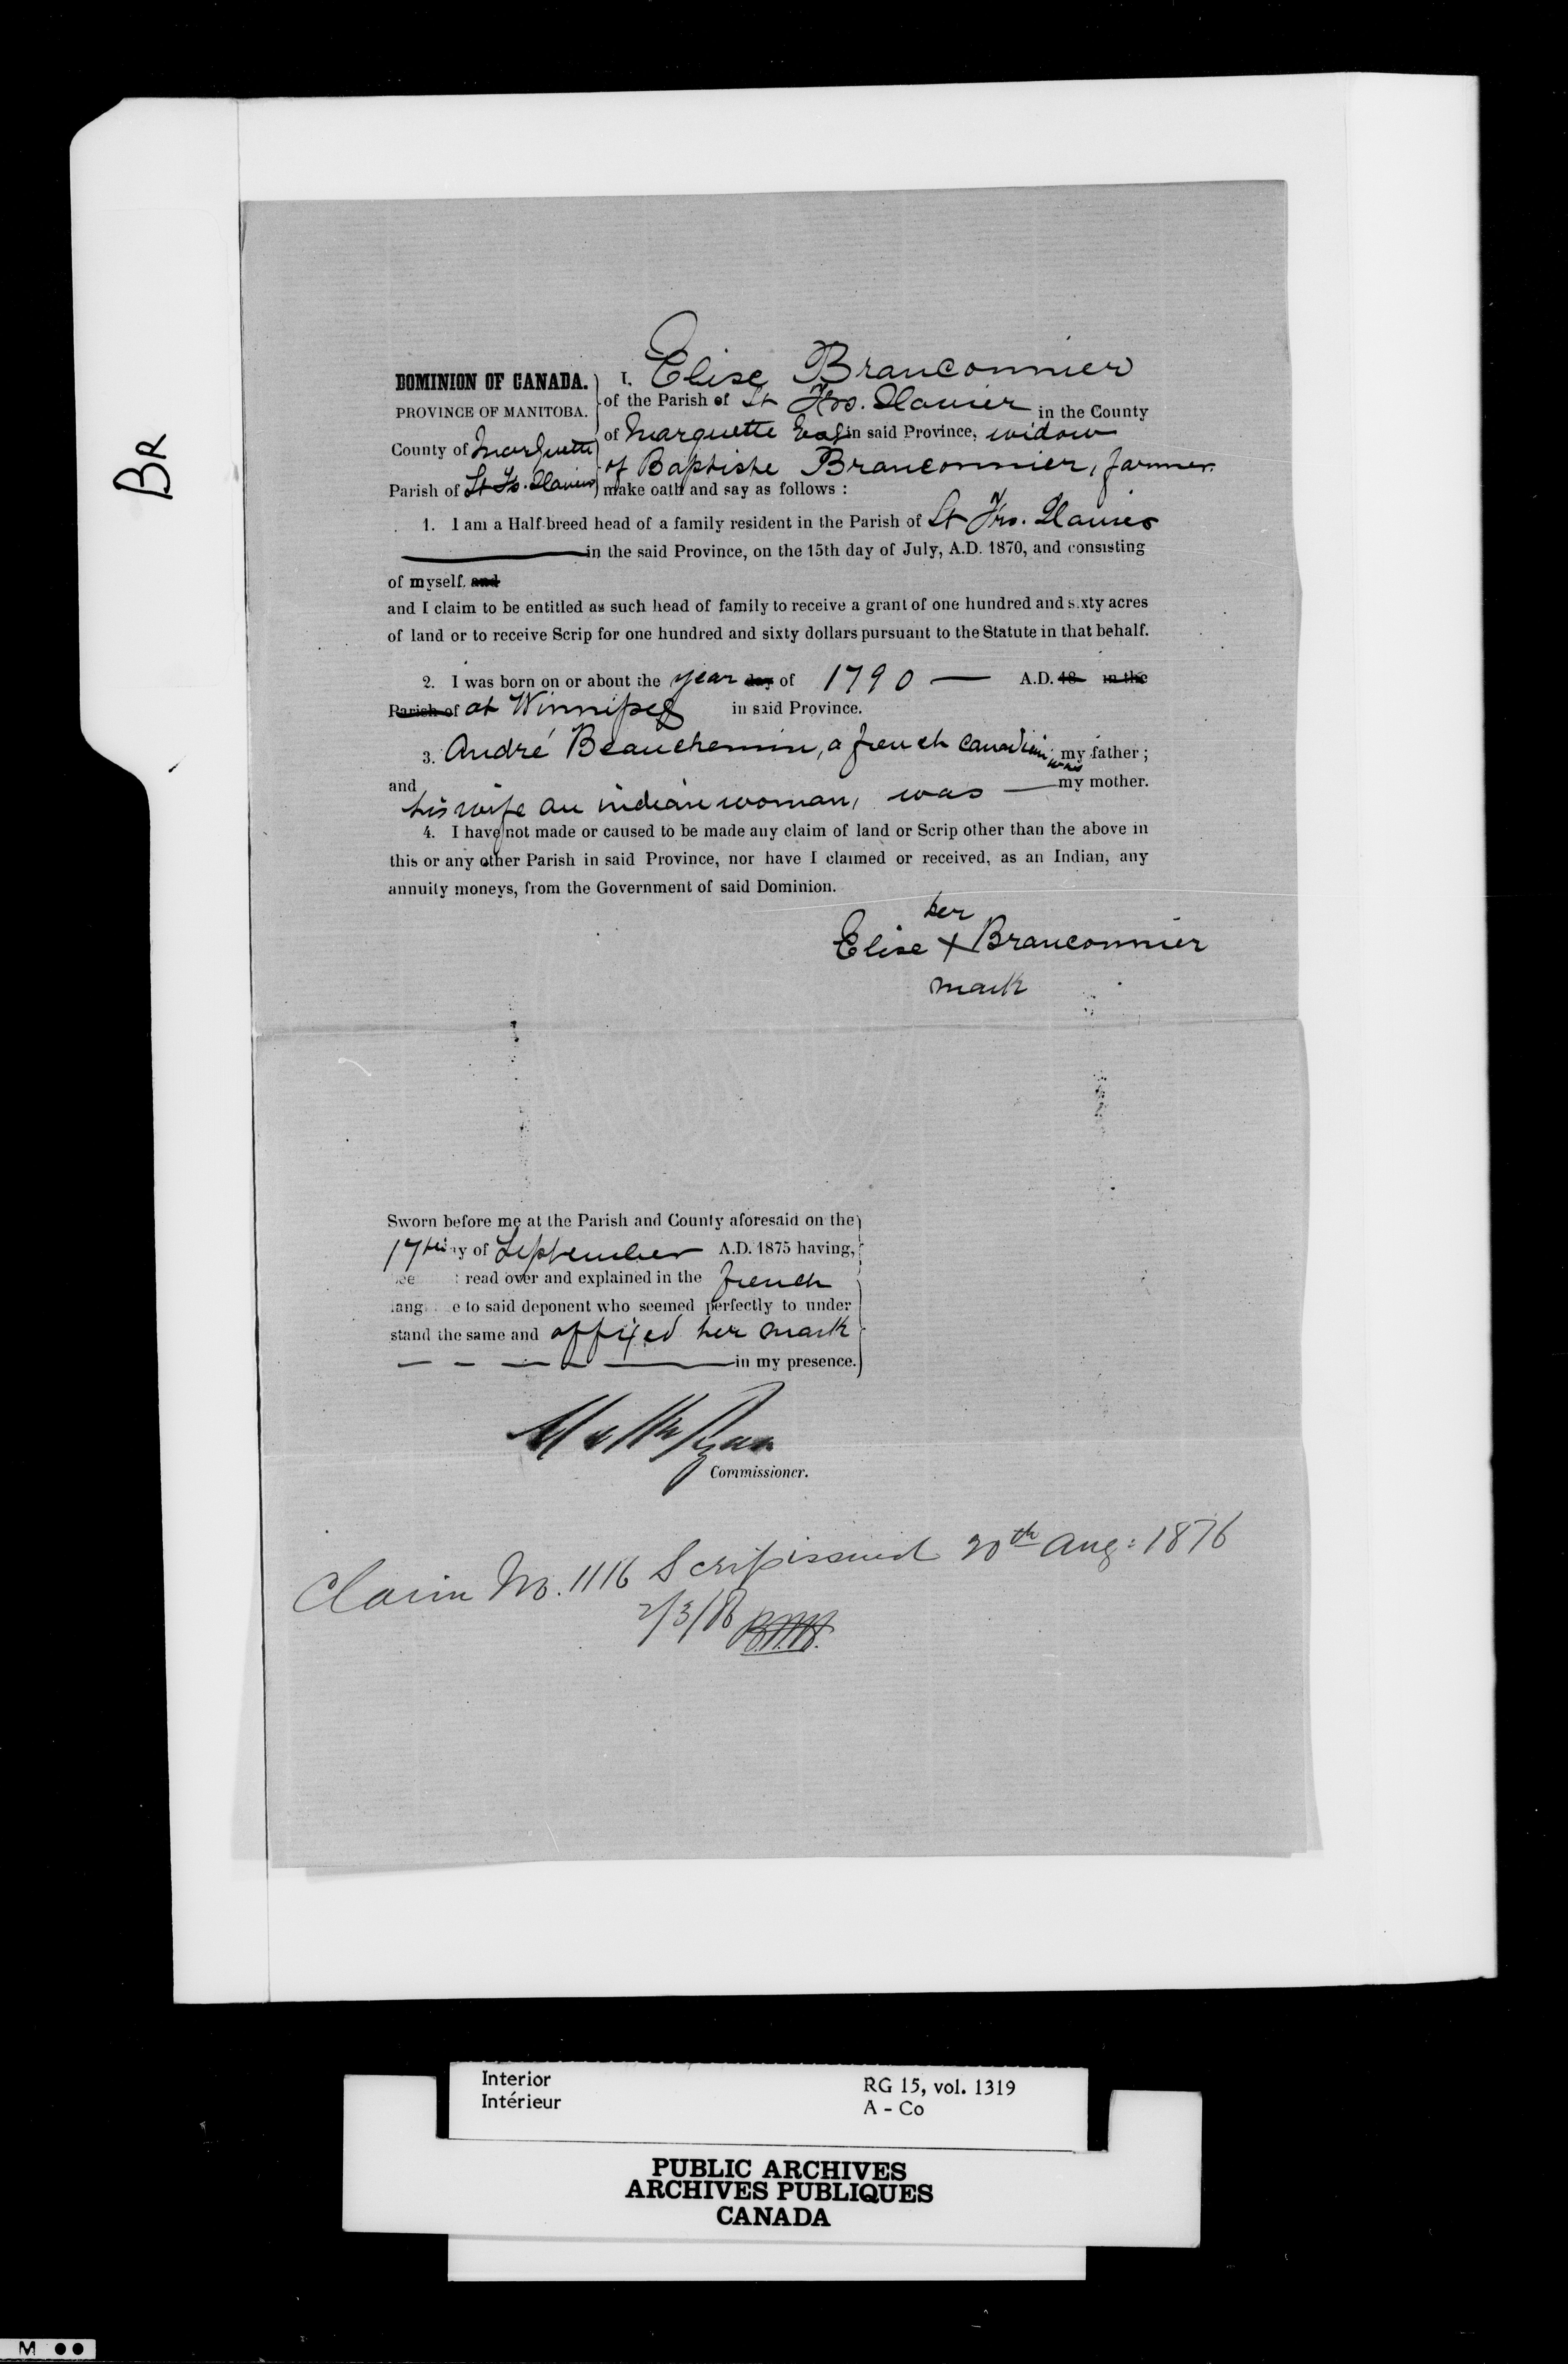 BR
DOMINION OF CANADA.
PROVINCE OF MANITOBA.
County of Marquette
Parish of St Frs. Xavier
I, Elise Branconnier
of the Parish of St Frs. Xavier in the County
of Marquette East in said Province, widow
of Baptiste Branconnier, farmer
make oath and say as follows :
1. I am a Half-breed head of a family resident in the Parish of St Frs. Xavier
in the said Province, on the 15th day of July, A.D. 1870, and consisting
of myself. and
and I claim to be entitled as such head of family to receive a grant of one hundred and sixty acres
of land or to receive Scrip for one hundred and sixty dollars pursuant to the Statute in that behalf.
2. I was born on or about the year day of 1790 — A.D. 18 in the
Parish of at Winnipeg in said Province.
3. André Beauchemin, a french Canadian was my father ;
and his wife an indian woman, was — my mother.
4. I have not made or caused to be made any claim of land or Scrip other than the above in
this or any other Parish in said Province, nor have I claimed or received, as an Indian, any
annuity moneys, from the Government of said Dominion.
her
Elise X Branconnier
mark
Sworn before me at the Parish and County aforesaid on the
17th ay of September A.D. 1875 having,
bee t read over and explained in the french
lang e to said deponent who seemed perfectly to under
stand the same and affixed her mark
in my presence.
Commissioner.
Claim No. 1116 Scrip issued 20th Aug: 1876
2/3/86
Interior
Intérieur
RG 15, vol. 1319
A - Co
PUBLIC ARCHIVES
ARCHIVES PUBLIQUES
CANADA
M